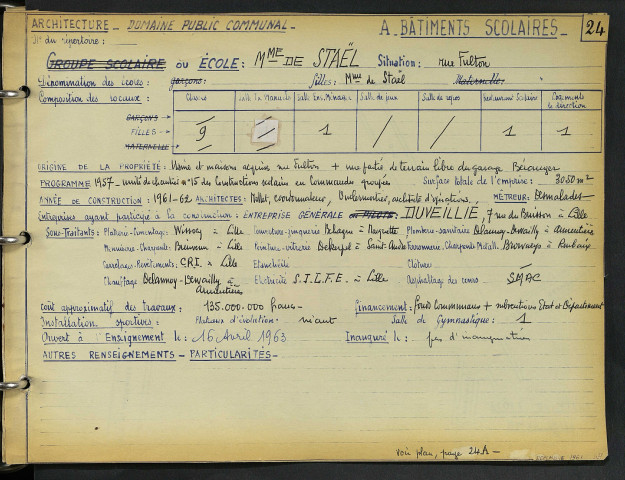 ARCHITECTURE - DOMAINE PUBLIC COMMUNAL - A - BÂTIMENTS SCOLAIRES - 24
N° du répertoire :
GROUPE SCOLAIRE ou ÉCOLE : MME DE STAËL Situation : rue Fulton
Dénomination des écoles : Garçons : filles : Mme de Staël Maternelle :
Composition des locaux : Classes Salle Tr. Manuels Salle Ens. Ménager Salle de jeux Salle de repos Restaurant Scolaire Logements de direction
GARÇONS →
FILLES → 9 / 1 / / 1 1
MATERNELLE →
ORIGINE DE LA PROPRIÉTÉ : Usine et maisons acquises rue Fulton + une partie de terrain libre du garage
PROGRAMME 1957 - unité de chantier n° 15 des Constructions scolaires en Commandes groupées Surface totale de l'emprise : 3050 m²
ANNÉE DE CONSTRUCTION : 1961-62 ARCHITECTES : coordonnateur, architecte d'opérations, MÉTREUR : Desmalades -
Entreprises ayant participé à la construction : ENTREPRISE GÉNÉRALE DUVEILLIE, 7 rue du Buisson à Lille
Sous-Traitants : Plâtrerie-Cimentage : à Lille Couverture-zinguerie à Plomberie-sanitaire Delannoy-Dewailly à Armentières
Menuiserie-Charpente : à Lille Peinture-vitrerie à Saint-André Ferronnerie-Charpente Métall. à Roubaix
Carrelages-Revêtements : C.R.I. à Lille Etanchéité Clôture /
Chauffage Delannoy-Dewailly à Armentières Electricité S.I.L.F.E. à Lille Asphaltage des cours SMAC
Coût approximatif des travaux : 135.000.000 francs - Financement : fonds Communaux + subventions Etat et Département
Installations sportives : Plateaux d'évolution : néant Salle de Gymnastique : 1
Ouvert à l'Enseignement le : 16 Avril 1963 Inauguré le : pas d'inauguration
AUTRES RENSEIGNEMENTS - PARTICULARITÉS -
Voir plan, page 24A -